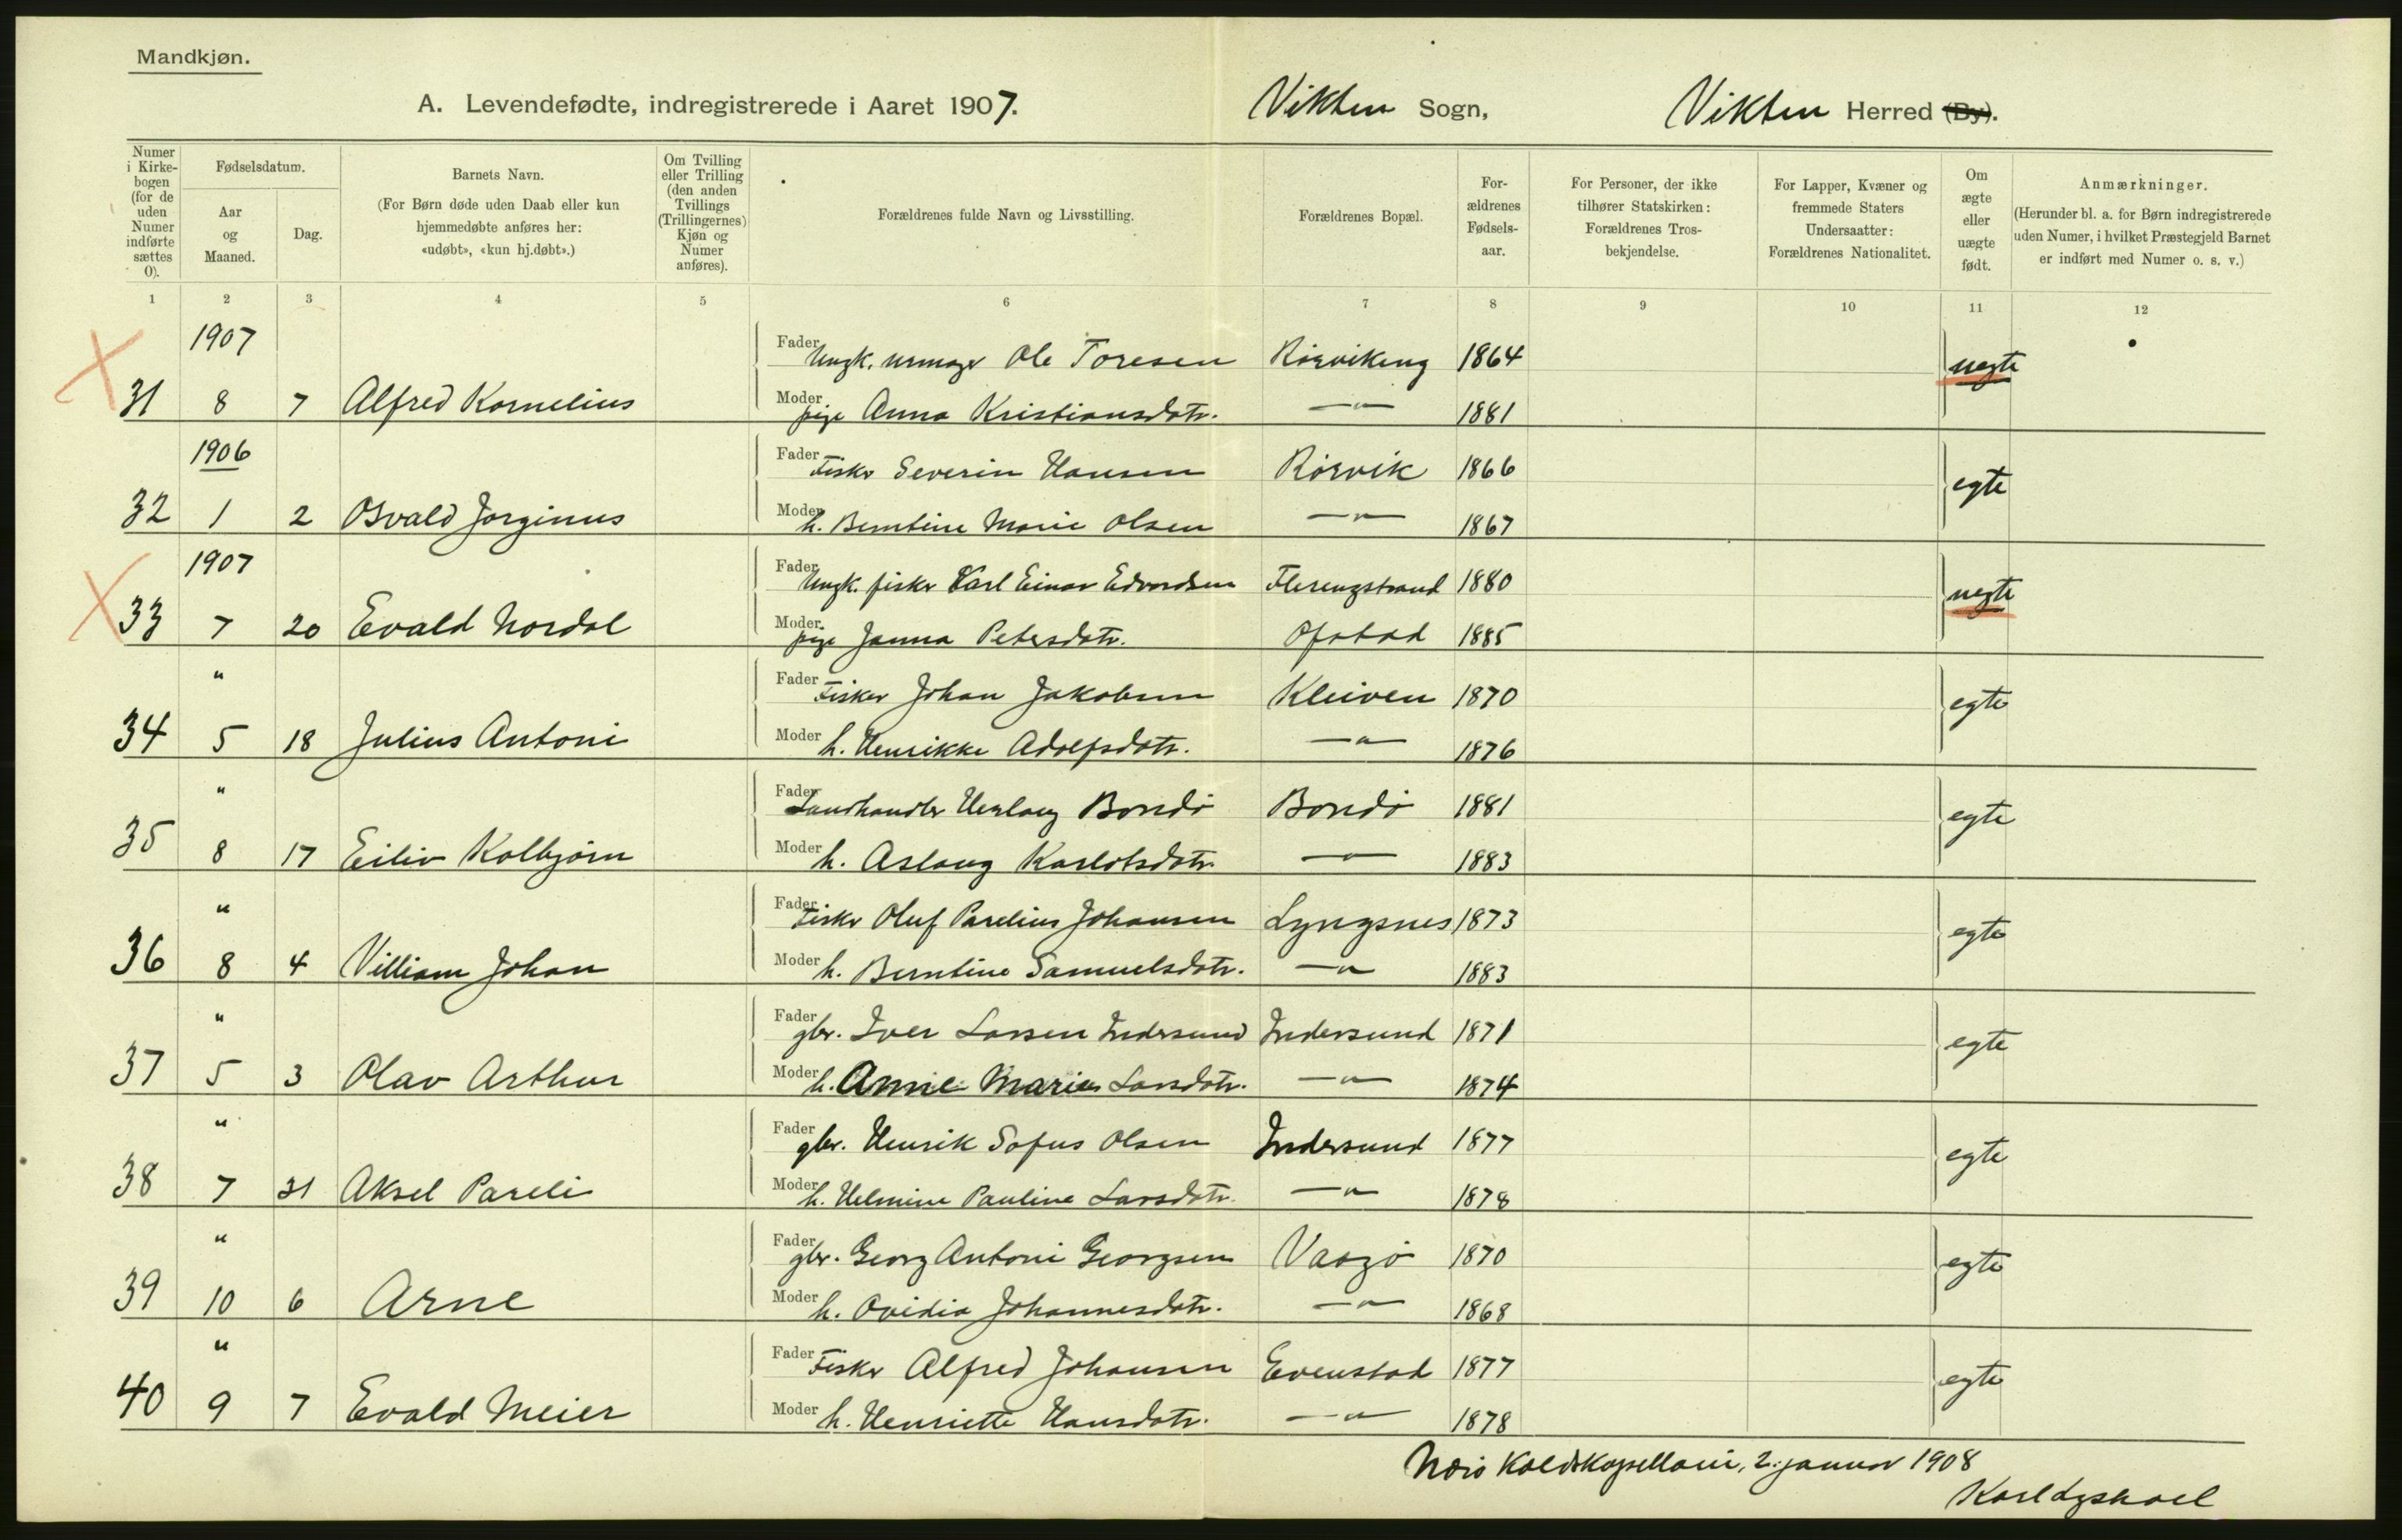 Mandkjøn.
A. Levendefødte, indregistrerede i Aaret 1907. Vikten Sogn, Vikten Herred (By).
Numer i Kirkebogen (for de uden Numer indførte sættes 0).
Fødselsdatum.
Aar og Maaned.
Dag.
Barnets Navn.
(For Børn døde uden Daab eller kun hjemmedøbte anføres her: «udøbt», «kun hj.døbt».)
Om Tvilling eller Trilling (den anden Tvillings (Trillingernes) Kjøn og Numer anføres).
Forældrenes fulde Navn og Livsstilling.
Forældrenes Bopæl.
Forældrenes Fødselsaar.
For Personer, der ikke tilhører Statskirken: Forældrenes Trosbekjendelse.
For Lapper, Kvæner og fremmede Staters Undersaatter: Forældrenes Nationalitet.
Om ægte eller uægte født.
Anmærkninger.
(Herunder bl. a. for Børn indregistrerede uden Numer, i hvilket Præstegjeld Barnet er indført med Numer o. s. v.)
1 2 3 4 5 6 7 8 9 10 11 12
1907 Fader Ungk. urmager Ole Toresen Rörviking 1864 uegte
31 8 7 Alfred Kornelius Moder pige Anna Kristiansdatr. —"— 1881
1906 Fader Fisker Severin Hansen Rörvik 1866 egte
32 1 2 Osvald Jorginus Moder h. Berntine Marie Olsen —"— 1867
1907 Fader Ungk. fisker Karl Einar Edvardsen Flerengstrand 1880 uegte
33 7 20 Evald Nordal Moder pige Janna Petersdatr. Ofstad 1885
" Fader Fisker Johan Jakobsen Kleiven 1870 egte
34 5 18 Julius Antoni Moder h. Henrikke Adolfsdatr. —"— 1876
" Fader Landhandler Herlaug Bondö Bondö 1881 egte
35 8 17 Eiliv Kolbjörn Moder h. Aslaug Karlotsdatr. —"— 1883
" Fader Fisker Oluf Parelius Johansen Lyngsnes 1873 egte
36 8 4 Villiam Johan Moder h. Berntine Samuelsdatr. —"— 1883
" Fader gbr. Iver Larsen Indersund Indersund 1871 egte
37 5 3 Olav Arthur Moder h. Anne Marie Larsdatr. —"— 1874
" Fader gbr. Henrik Sofus Olsen Indersund 1877 egte
38 7 31 Aksel Pareli Moder h. Helmine Pauline Larsdatr. —"— 1878
" Fader gbr. Georg Antoni Georgsen Vaagö 1870 egte
39 10 6 Arne Moder h. Ovidia Johannesdatr. —"— 1868
" Fader Fisker Alfred Johansen Evenstad 1877 egte
40 9 7 Evald Meier Moder h. Henriette Hansdatr. —"— 1878
Nærö 2. januar 1908